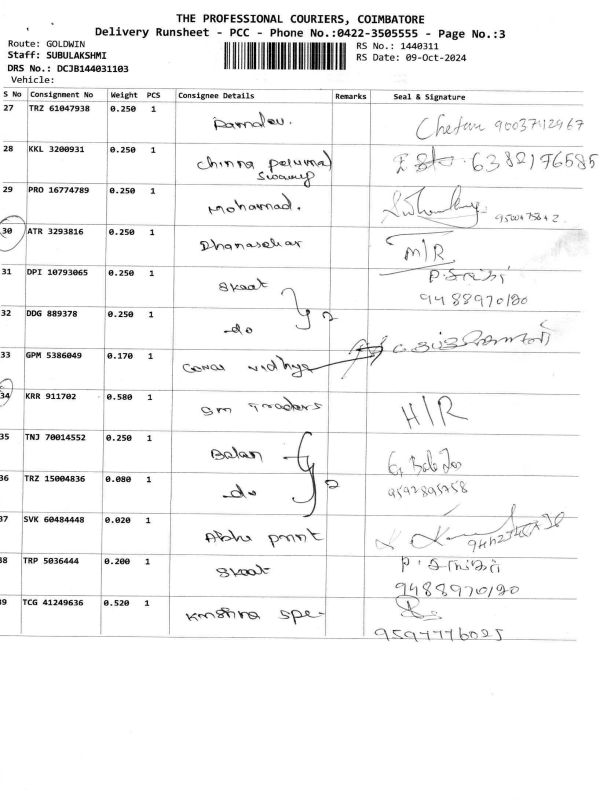 THE PROFESSIONAL COURIERS, COIMBATORE
Delivery Runsheet - PCC - Phone No.:0422-3505555 - Page No.:3
Route: GOLDWIN
RS No.: 1440311
Staff: SUBULAKSHMI
RS Date: 09-Oct-2024
DRS No.: DCJB144031103
Vehicle:
S No Consignment No Weight PCS Consignee Details Remarks Seal & Signature
27 TRZ 61047938 0.250 1 Ramdev. Chetan 9003742467
28 KKL 3200931 0.250 1 Chinna perumal
Swamy 6382176585
29 PRO 16774789 0.250 1 Mohamad.
30 ATR 3293816 0.250 1 Dhanasekar M/R
31 DPI 10793065 0.250 1 Skaat
9488970190
32 DDG 889378 0.250 1 -do 2
33 GPM 5386049 0.170 1 vidhya
34 KRR 911702 0.580 1 Sm Traders H/R
35 TNJ 70014552 0.250 1 Balan
36 TRZ 15004836 0.080 1 -do 2
37 SVK 60484448 0.020 1 Abhi print
38 TRP 5036444 0.200 1 Skaat
9488970190
39 TCG 41249636 0.520 1 Krishna spe-
9597776025